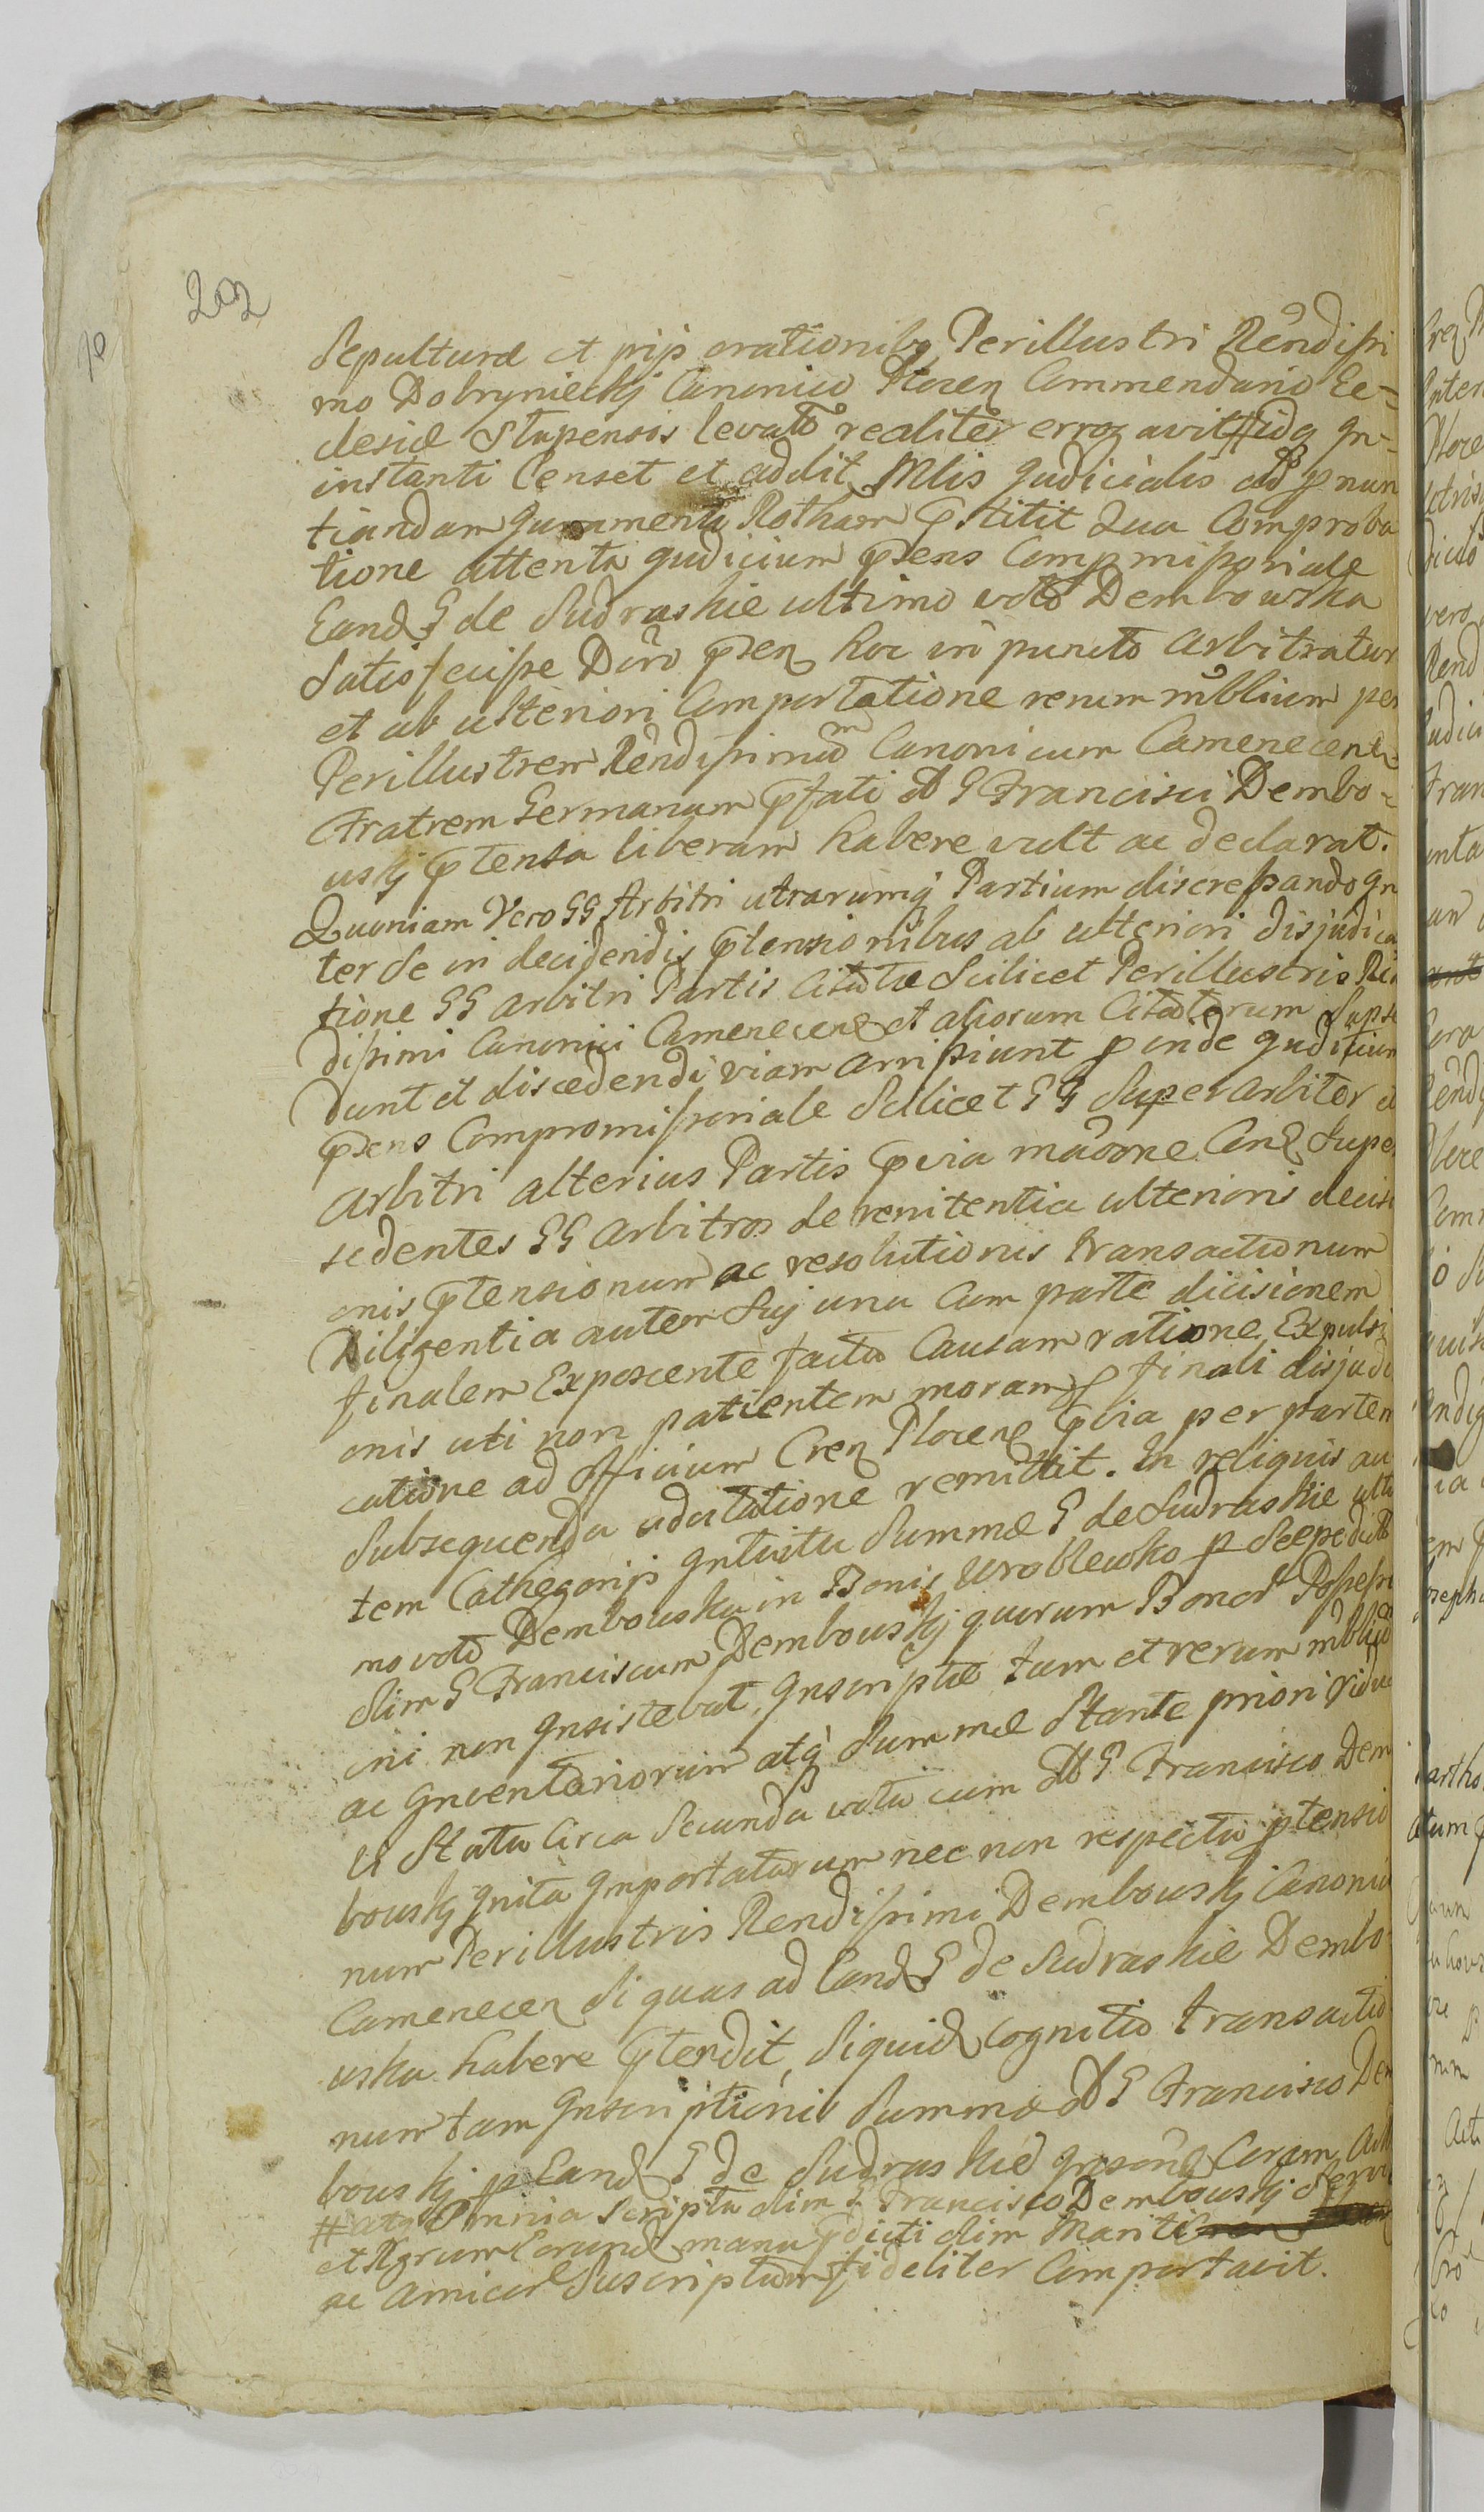 202
70
Sepulturæ et pijs orationibq Perillustri Rendissi
mo Dobrynieckj Canonico Plocen Commendario Ec=
clesiæ Stupensis levato realiter erogavit # idq In=
instanti Censet et addit Mlis Judicialis ad p nun
tiandam Juramenti Rotham pstitit Qua Comproba
tione attenta Judicium pens Compmissoriale
Eand G de Sudraskie ultimo voto Dembowska
Satisfecisse Dcro psen hoc in puncto arbitratur
et ab ulteriori Comportatione rerum mblium per
Perillustrem Rendissimum Canonicum Camenecen
Fratrem Germanum pfati G Francisci Dembo=
uskj ptensa liberam habere vult ac declarat.
Quoniam Vero GG Arbitri utrarumq Partium discrepando In
ter se in decidendis ptensionibus ab ulteriori disjudica
tione GG arbitri Partis Citatæ Scilicet Perillustris Ren
dissimi Canonici Camenecen et aliorum Citatorum Supse
dunt et discedendi viam arripiunt p inde Judicium
psens Compromissoriale Scilicet GG Superarbiter et
arbitri alterius Partis pvia maone Con Super
sedentes GG arbitros de renitentia ulterioris decisi
onis ptensionum ac resolutionis transactionum
Diligentia autem Suj una Cum parte dicisionem
finalem Exposcente facta Causam ratione Expulsi
onis uti non patientem moram p finali disjudi
catione ad officium Cren Plocen pvia per partem
Subsequenda adcitatione remittit. In reliquis au
tem Cathegorijs Intuitu Summæ G de Sudraskie ulti
mo voto Dembouska in Bonis Wroblewko p Sæpedict
olim G Franciscum Dembouskj quorum Bonor Possessi
oni non Insistebat, Inscriptæ tum et rerum mblium
ac Inventariorum atq Summæ Stante priori vidue
li Statu Circa Secunda vota cum G Francisco Dem
bouskj Inita Importatarum nec non respectu ptensio
num Perillustris Rendissimi Dembouskj Canonici
Camenecen Si quas ad Eand G de Sudraskie Dembo
uska habere ptendit, Siquid Cognitio transactio
num tam Inscriptionis Summæ G Francisco Dem
bouskj p Eand G de Sudraskie Coram
# atq Omnia Scripta olim G Francisco Dembouskj Servi
et Eorund manu pdicti olim Mariti
ac amicor Suscriptum fideliter Comportavit.